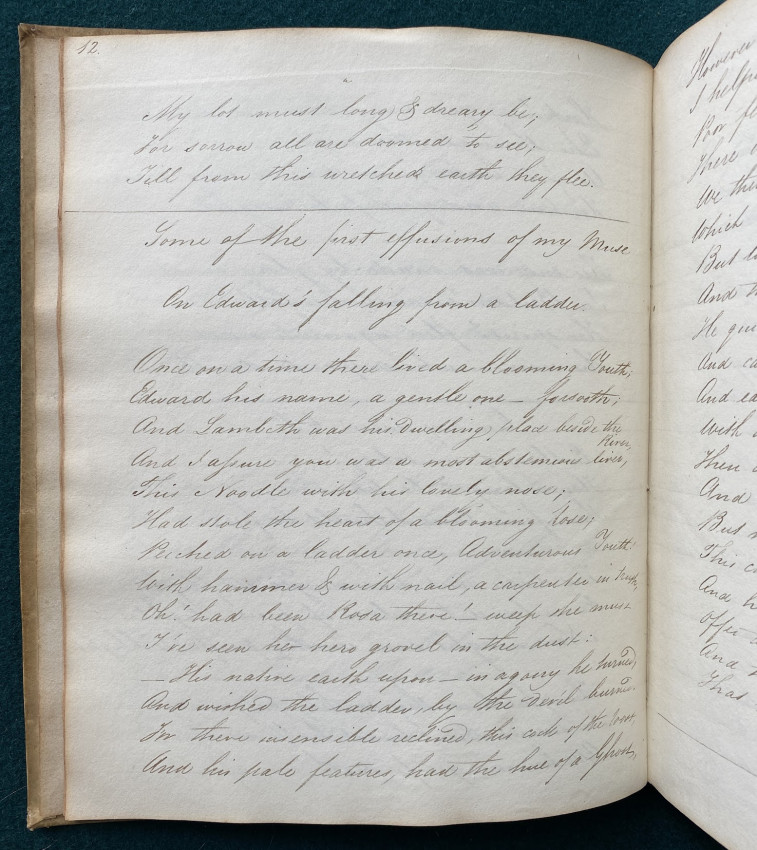 12.
My lot must long & dreary be;
For sorrow all are doomed to see;
Till from this wretched earth they flee.
Some of the first effusions of my Muse
On Edward's falling from a ladder.
Once on a time there lived a blooming Youth;
Edward his name, a gentle one – forsooth;
And Lambeth was his dwelling place beside the River,
And I assure you was a most abstemious liver,
This Noodle with his lovely nose;
Had stole the heart of a blooming Rose;
Perched on a ladder once, Adventurous Youth
With hammer & with nail, a carpenter in truth,
Oh! had been Rosa there! – weep she must
I've seen her hero grovel in the dust:
– His native earth upon – in agony he turned,
And wished the ladder, by the Devil burned.
For there insensible reclined, this cock of the roost
And his pale features, had the hue of a Ghost,
However
I help
Poor
There
We
Which
But
And
He
And
And
With
Then
And
But
This
And
And
That